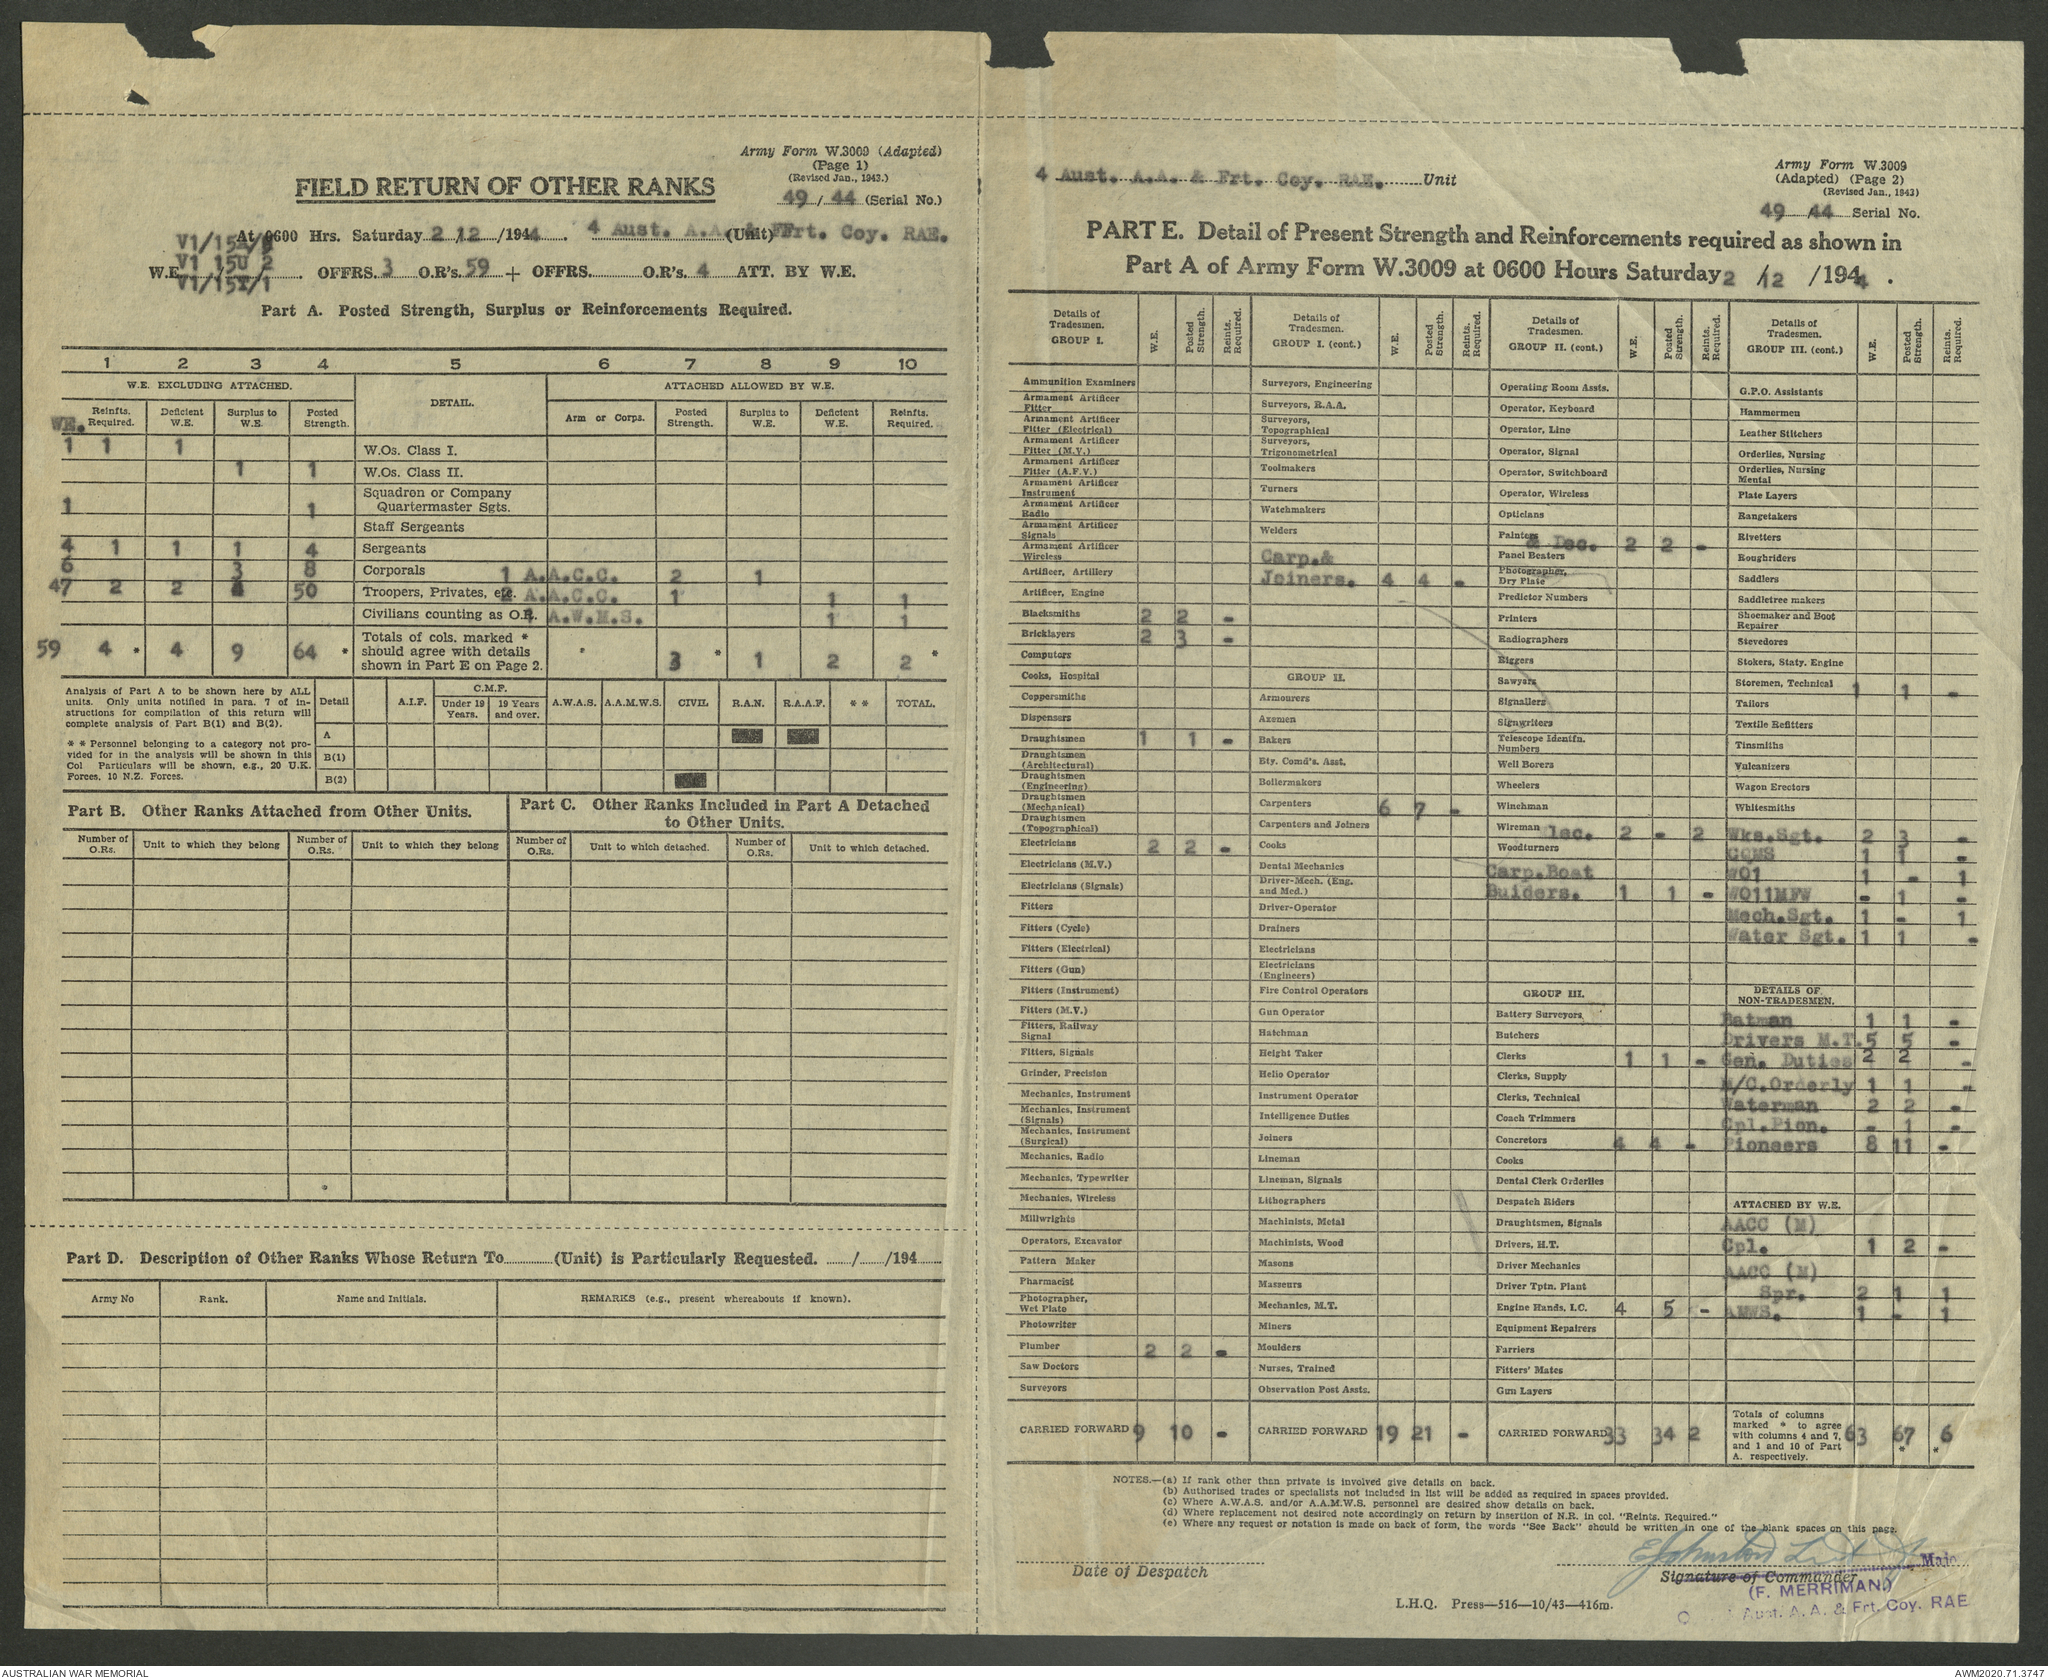 Army Form W.3009 (Adapted)
(Page 1)
(Revised Jan., 1943.)
49 / 44 (Serial No.)
FIELD RETURN OF OTHER RANKS
At 0600 Hrs. Saturday 2 /12 /1944. 4 Aust. A.A. & Frt. Coy. RAE. (Unit)
V1 15U 2
V1/15I/1
W.E. OFFRS. 3 O.R's. 59 + OFFRS. O.R's. 4 ATT. BY W.E.
Part A. Posted Strength, Surplus or Reinforcements Required.
1 2 3 4 5 6 7 8 9 10
W.E. EXCLUDING ATTACHED. DETAIL. ATTACHED ALLOWED BY W.E.
WE. Reinfts. Required. Deficient W.E. Surplus to W.E. Posted Strength. Arm or Corps. Posted Strength. Surplus to W.E. Deficient W.E. Reinfts. Required.
1 1 1 W.Os. Class I.
1 1 W.Os. Class II.
1 1 Squadron or Company Quartermaster Sgts.
Staff Sergeants
4 1 1 1 4 Sergeants
6 3 8 Corporals 1 A.A.C.C. 2 1
47 2 2 4 50 Troopers, Privates, etc. 2 A.A.C.C. 1 1 1
Civilians counting as O.R. 1 A.W.M.S. 1 1
59 4 * 4 9 64 * Totals of cols. marked * should agree with details shown in Part E on Page 2. 3 * 1 2 2 *
Analysis of Part A to be shown here by ALL
units. Only units notified in para. 7 of in-
structions for compilation of this return will
complete analysis of Part B(1) and B(2).
* * Personnel belonging to a category not pro-
vided for in the analysis will be shown in this
Col Particulars will be shown, e.g., 20 U.K.
Forces, 10 N.Z. Forces.
Detail A.I.F. C.M.F. Under 19 Years. 19 Years and over. A.W.A.S. A.A.M.W.S. CIVIL R.A.N. R.A.A.F. * * TOTAL.
A
B(1)
B(2)
Part B. Other Ranks Attached from Other Units.
Part C. Other Ranks Included in Part A Detached
to Other Units.
Number of O.Rs. Unit to which they belong Number of O.Rs. Unit to which they belong Number of O.Rs. Unit to which detached. Number of O.Rs. Unit to which detached.
Part D. Description of Other Ranks Whose Return To............(Unit) is Particularly Requested. ....../....../194......
Army No Rank. Name and Initials. REMARKS (e.g., present whereabouts if known).
4 Aust. A.A. & Frt. Coy. RAE. Unit
Army Form W.3009
(Adapted) (Page 2)
(Revised Jan., 1943)
49 /44 Serial No.
PART E. Detail of Present Strength and Reinforcements required as shown in
Part A of Army Form W.3009 at 0600 Hours Saturday 2 /12 /1944.
Details of Tradesmen. GROUP I. W.E. Posted Strength. Reinfts. Required.
Ammunition Examiners
Armament Artificer Fitter
Armament Artificer Fitter (Electrical)
Armament Artificer Fitter (M.V.)
Armament Artificer Fitter (A.F.V.)
Armament Artificer Instrument
Armament Artificer Radio
Armament Artificer Signals
Armament Artificer Wireless
Artificer, Artillery
Artificer, Engine
Blacksmiths 2 2 -
Bricklayers 2 3 -
Computors
Cooks, Hospital
Coppersmiths
Dispensers
Draughtsmen 1 1 -
Draughtsmen (Architectural)
Draughtsmen (Engineering)
Draughtsmen (Mechanical)
Draughtsmen (Topographical)
Electricians 2 2 -
Electricians (M.V.)
Electricians (Signals)
Fitters
Fitters (Cycle)
Fitters (Electrical)
Fitters (Gun)
Fitters (Instrument)
Fitters (M.V.)
Fitters, Railway Signal
Fitters, Signals
Grinder, Precision
Mechanics, Instrument
Mechanics, Instrument (Signals)
Mechanics, Instrument (Surgical)
Mechanics, Radio
Mechanics, Typewriter
Mechanics, Wireless
Millwrights
Operators, Excavator
Pattern Maker
Pharmacist
Photographer, Wet Plate
Photowriter
Plumber 2 2 -
Saw Doctors
Surveyors
CARRIED FORWARD 9 10 -
Details of Tradesmen. GROUP I. (cont.) W.E. Posted Strength. Reinfts. Required.
Surveyors, Engineering
Surveyors, R.A.A.
Surveyors, Topographical
Surveyors, Trigonometrical
Toolmakers
Turners
Watchmakers
Welders
Carp.&
Joiners. 4 4 -
GROUP II.
Armourers
Axemen
Bakers
Bty. Comd's. Asst.
Boilermakers
Carpenters 6 7 -
Carpenters and Joiners
Cooks
Dental Mechanics
Driver-Mech. (Eng. and Med.)
Driver-Operator
Drainers
Electricians
Electricians (Engineers)
Fire Control Operators
Gun Operator
Hatchman
Height Taker
Helio Operator
Instrument Operator
Intelligence Duties
Joiners
Lineman
Lineman, Signals
Lithographers
Machinists, Metal
Machinists, Wood
Masons
Masseurs
Mechanics, M.T.
Miners
Moulders
Nurses, Trained
Observation Post Assts.
CARRIED FORWARD 19 21 -
Details of Tradesmen. GROUP II. (cont.) W.E. Posted Strength. Reinfts. Required.
Operating Room Assts.
Operator, Keyboard
Operator, Line
Operator, Signal
Operator, Switchboard
Operator, Wireless
Opticians
Painters & Dec. 2 2 -
Panel Beaters
Photographer, Dry Plate
Predictor Numbers
Printers
Radiographers
Riggers
Sawyers
Signallers
Signwriters
Telescope Identfn. Numbers
Well Borers
Wheelers
Winchman
Wireman lec. 2 - 2
Woodturners
Carp.Boat
Buiders. 1 1 -
GROUP III.
Battery Surveyors
Butchers
Clerks 1 1 -
Clerks, Supply
Clerks, Technical
Coach Trimmers
Concretors 4 4 -
Cooks
Dental Clerk Orderlies
Despatch Riders
Draughtsmen, Signals
Drivers, H.T.
Driver Mechanics
Driver Tptn. Plant
Engine Hands, I.C. 4 5 -
Equipment Repairers
Farriers
Fitters' Mates
Gun Layers
CARRIED FORWARD 33 34 2
Details of Tradesmen. GROUP III. (cont.) W.E. Posted Strength. Reinfts. Required.
G.P.O. Assistants
Hammermen
Leather Stitchers
Orderlies, Nursing
Orderlies, Nursing Mental
Plate Layers
Rangetakers
Rivetters
Roughriders
Saddlers
Saddletree makers
Shoemaker and Boot Repairer
Stevedores
Stokers, Staty. Engine
Storemen, Technical 1 1 -
Tailors
Textile Refitters
Tinsmiths
Vulcanizers
Wagon Erectors
Whitesmiths
Wks.Sgt. 2 3 -
CQMS 1 1 -
WO1 1 - 1
WO11MFW - 1 -
Mech.Sgt. 1 - 1
Water Sgt. 1 1 -
DETAILS OF NON-TRADESMEN.
Batman 1 1 -
Drivers M.T. 5 5 -
Gen. Duties 2 2 -
M/C.Orderly 1 1 -
Waterman 2 2 -
Cpl.Pion. - 1 -
Pioneers 8 11 -
ATTACHED BY W.E.
AACC (M)
Cpl. 1 2 -
AACC (M)
Spr. 2 1 1
AMWS. 1 - 1
Totals of columns marked * to agree with columns 4 and 7, and 1 and 10 of Part A. respectively. 63 67 * 6 *
NOTES.—(a) If rank other than private is involved give details on back.
(b) Authorised trades or specialists not included in list will be added as required in spaces provided.
(c) Where A.W.A.S. and/or A.A.M.W.S. personnel are desired show details on back.
(d) Where replacement not desired note accordingly on return by insertion of N.R. in col. "Reints. Required."
(e) Where any request or notation is made on back of form, the words "See Back" should be written in one of the blank spaces on this page.
EJohnston Lieut
Date of Despatch
Signature of Commander
(F. MERRIMAN)
Aust. A. A. & Frt. Coy. RAE
L.H.Q. Press—516—10/43—416m.
AUSTRALIAN WAR MEMORIAL
AWM2020.71.3747